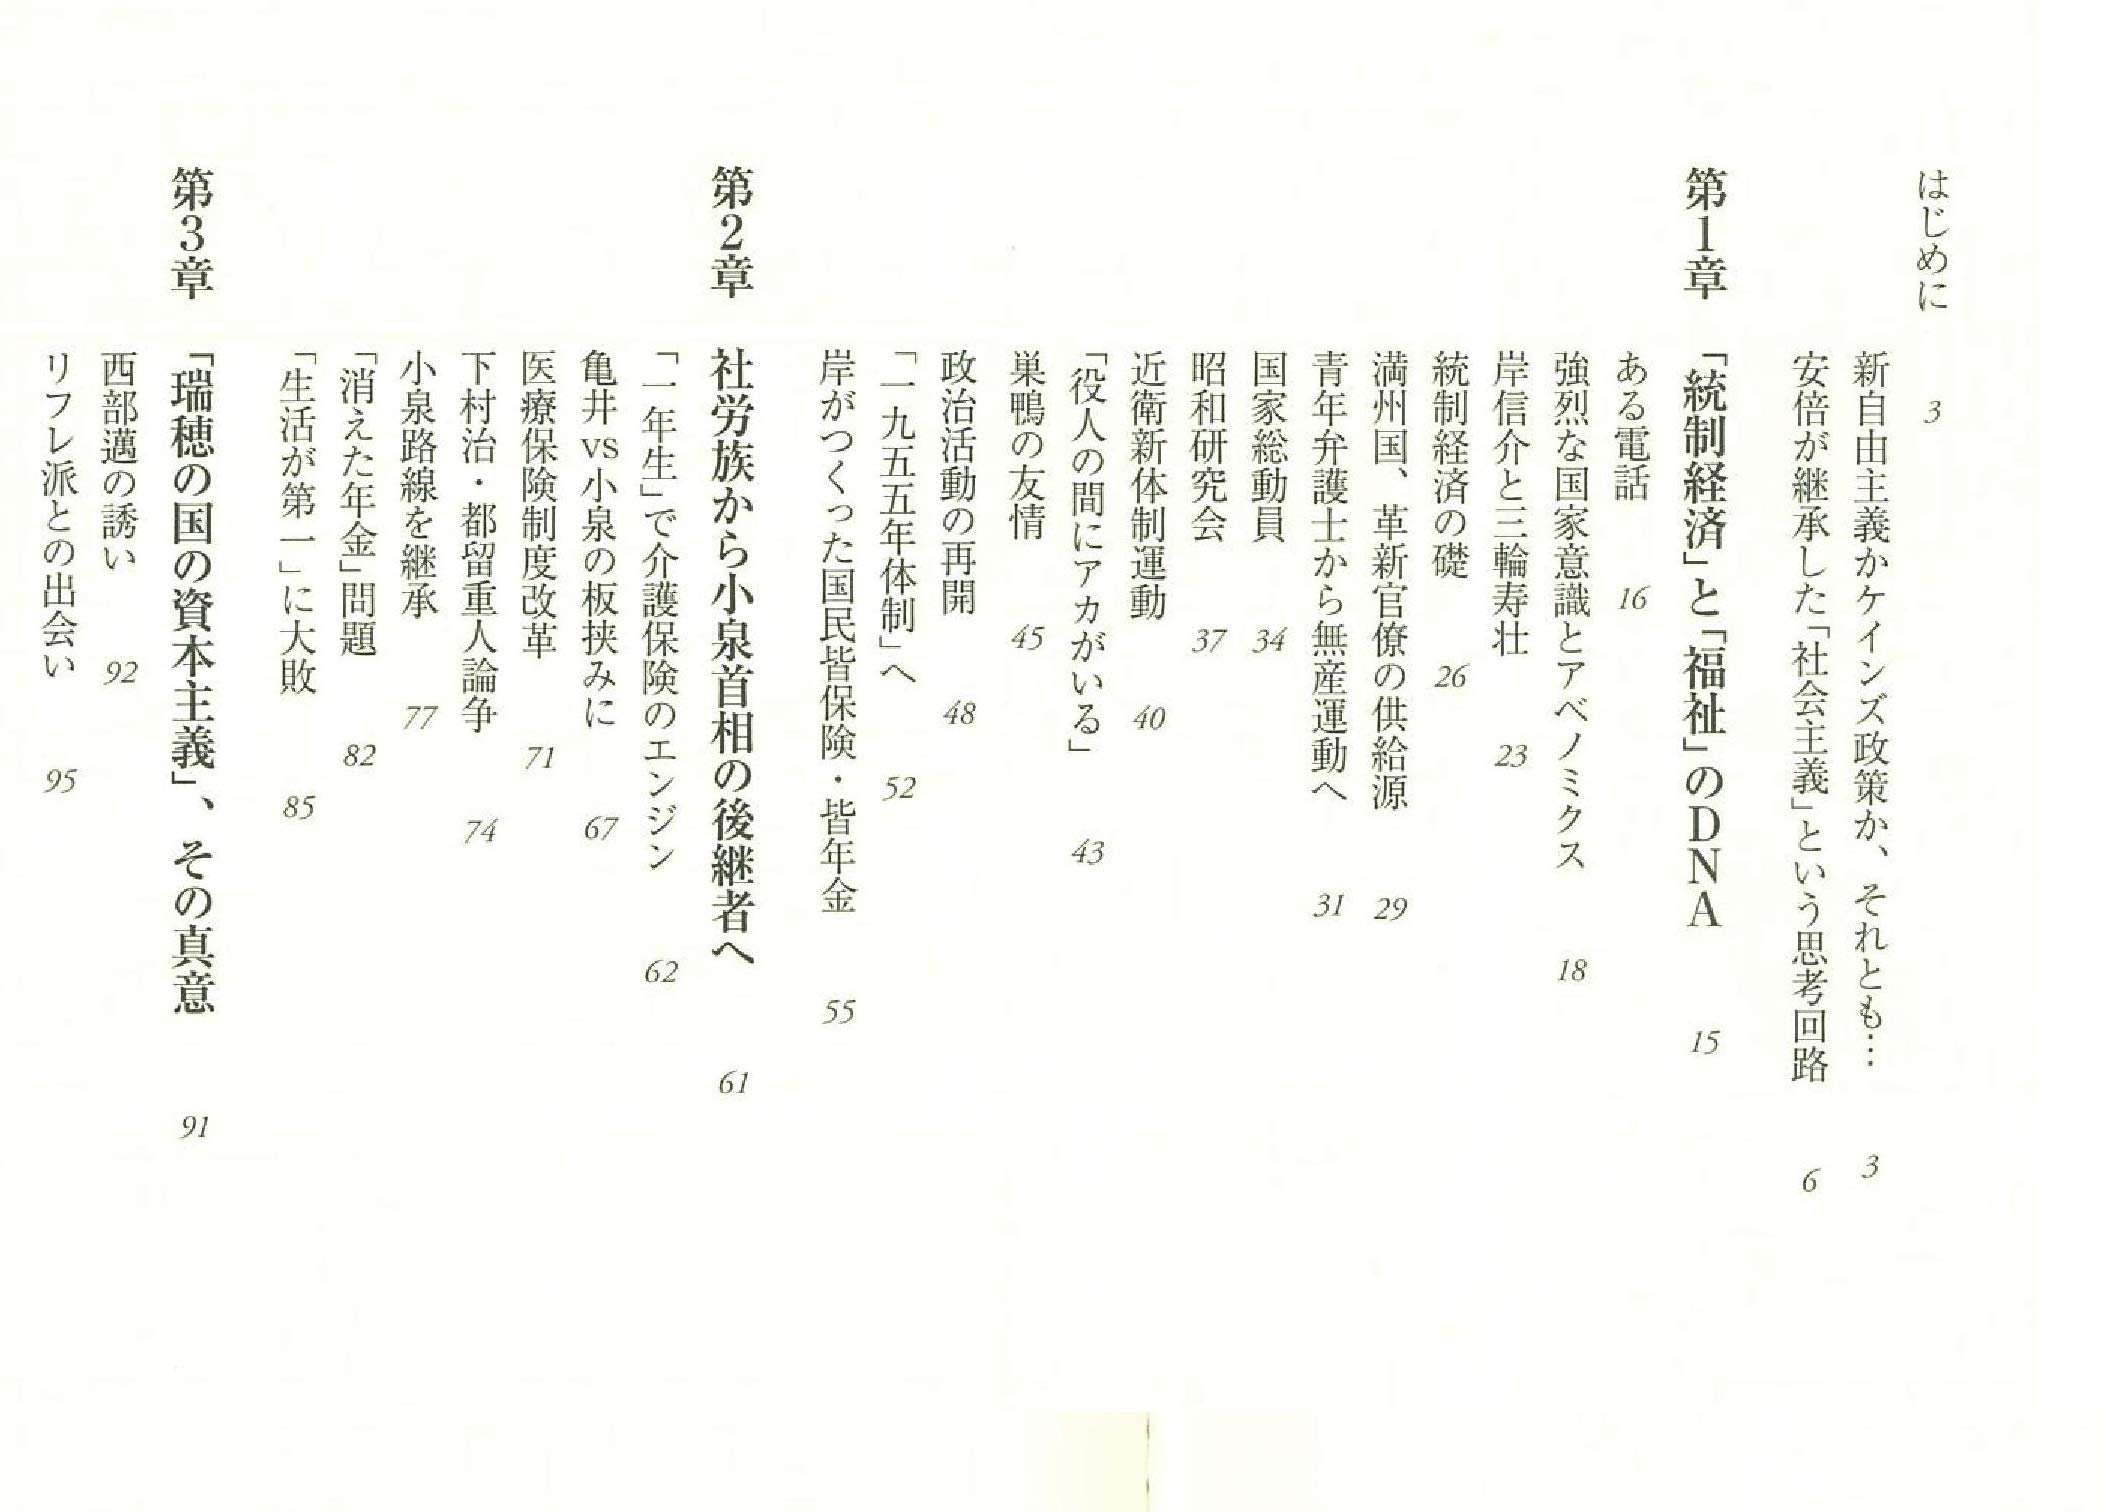 はじめに 3
新自由主義かケインズ政策か、それとも… 3
安倍が継承した「社会主義」という思考回路 6
第1章 「統制経済」と「福祉」のDNA 15
ある電話 16
強烈な国家意識とアベノミクス 18
岸信介と三輪寿壮 23
統制経済の礎 26
満州国、革新官僚の供給源 29
青年弁護士から無産運動へ 31
国家総動員 34
昭和研究会 37
近衛新体制運動 40
「役人の間にアカがいる」 43
巣鴨の友情 45
政治活動の再開 48
「一九五五年体制」へ 52
岸がつくった国民皆保険・皆年金 55
第2章 社労族から小泉首相の後継者へ 61
「一年生」で介護保険のエンジン 62
亀井vs小泉の板挟みに 67
医療保険制度改革 71
下村治・都留重人論争 74
小泉路線を継承 77
「消えた年金」問題 82
「生活が第一」に大敗 85
第3章 「瑞穂の国の資本主義」、その真意 91
西部邁の誘い 92
リフレ派との出会い 95